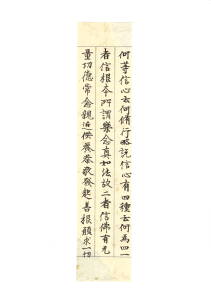 何等信心云何脩行略説信心有四種云何為四一
者信根本所謂樂念真如法故二者信佛有无
量功德常念親近供養恭敬發起善根願求一切